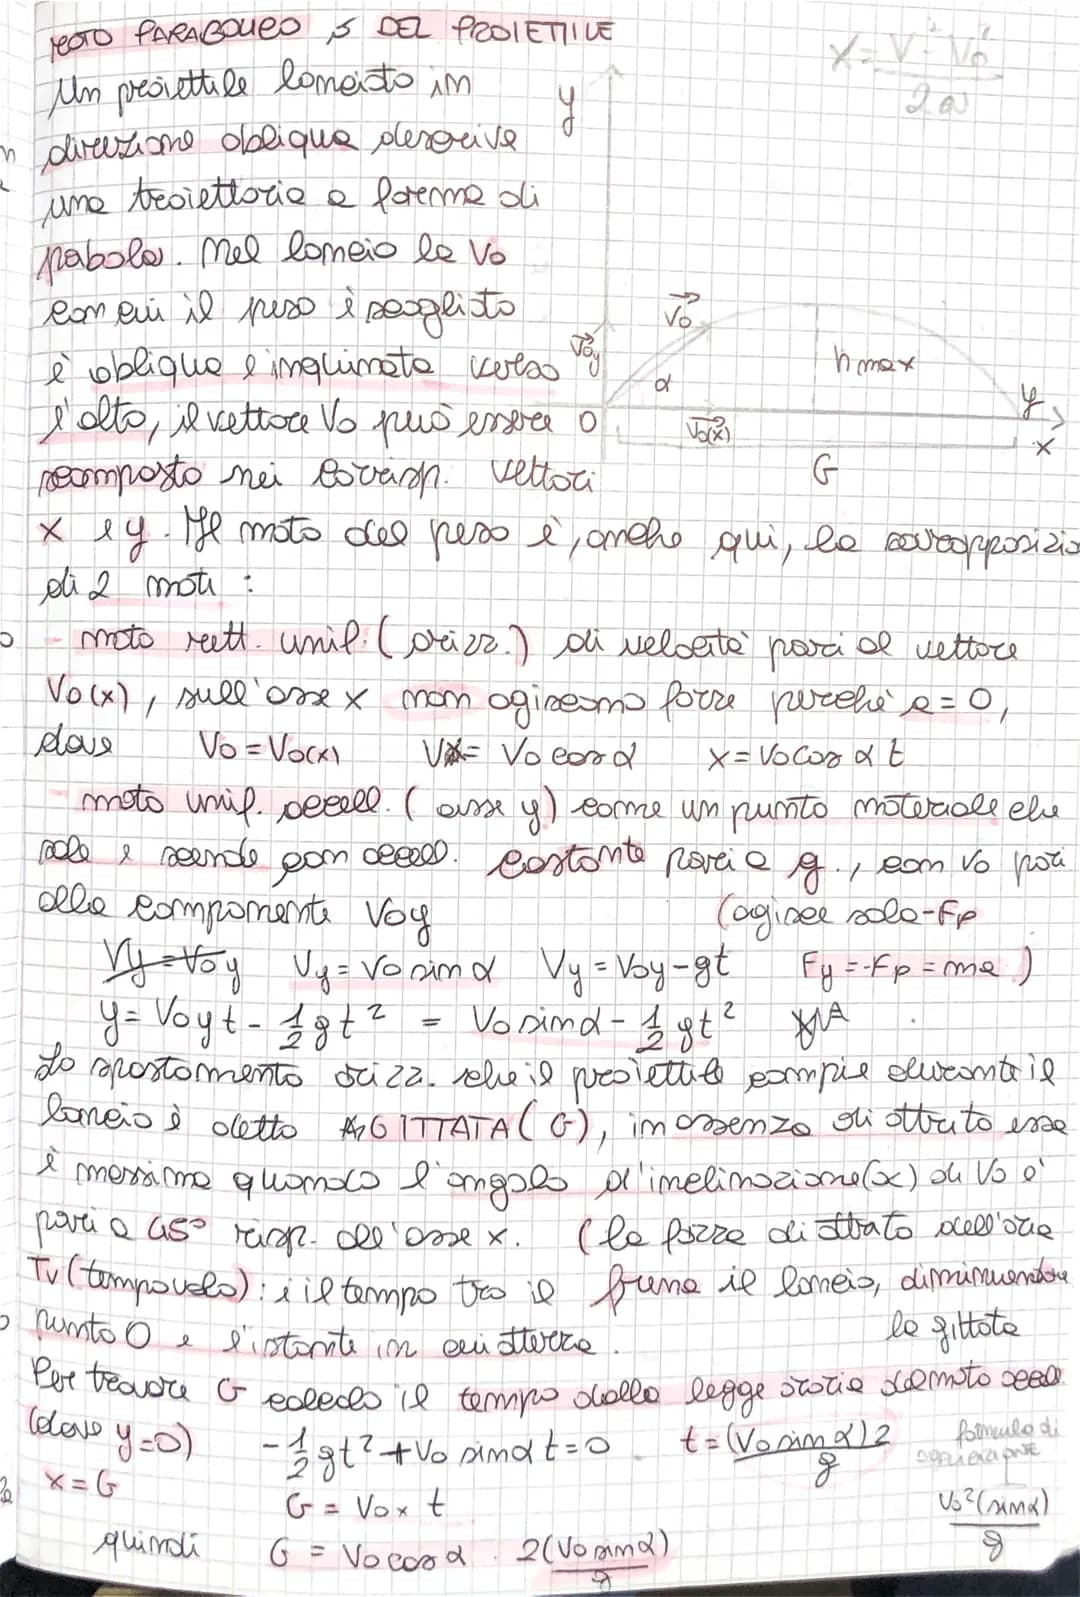 MOTO PARABOLICO o DEL PROIETTILE
Un proiettile lanciato in
direzione obliqua descrive
una traiettoria a forma di
pabola. Nel lancio la Vo
con cui il peso è scagliato
è obliqua e inclinata verso
l'alto, il vettore Vo può essere
scomposto nei corrisp. vettori
x e y. Il moto del peso è, anche qui, la sovrapposizio
di 2 moti :
- moto rett. unif. (orizz.) di velocità pari al vettore
Vo(x), sull'asse x non agiscono forze perché a=0,
dove Vo = Vo(x) Vx = Vo cos α x = Vo cos α t
- moto unif. accell. (asse y) come un punto materiale che
sale e scende con accell. costante pari a g., con Vo pari
alla componente Voy (agisce solo -Fp
Vy = Voy Vy = Vo sin α Vy = Voy - gt Fy = -Fp = ma )
y = Voy t - 1/2 gt² = Vo sin α - 1/2 gt²
Lo spostamento orizz. che il proiettile compie durante il
lancio è detto GITTATA (G), in assenza di attrito essa
è massima quando l'angolo d'inclinazione (α) di Vo è
pari a 45° risp. all'asse x. (la forza di attrito dell'aria
Tv (tempo volo): è il tempo tra il frena il lancio, diminuendone
punto O e l'istante in cui atterra. la gittata
Per trovare G calcolo il tempo dalla legge oraria del moto accell
(dove y=0) - 1/2 gt² + Vo sin α t = 0 t = (Vo sin α) 2 / g formula di
x = G
G = Vox t Vo² (sin α) / g
quindi G = Vo cos α · 2(Vo sin α) / g
x = V² - Vo² / 2a
y
Vo
Voy
α
h max
O
Vo(x)
y
x
G